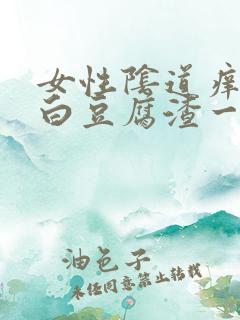 女性陰道痒
白豆腐渣一
油色子
未经同意禁止转载